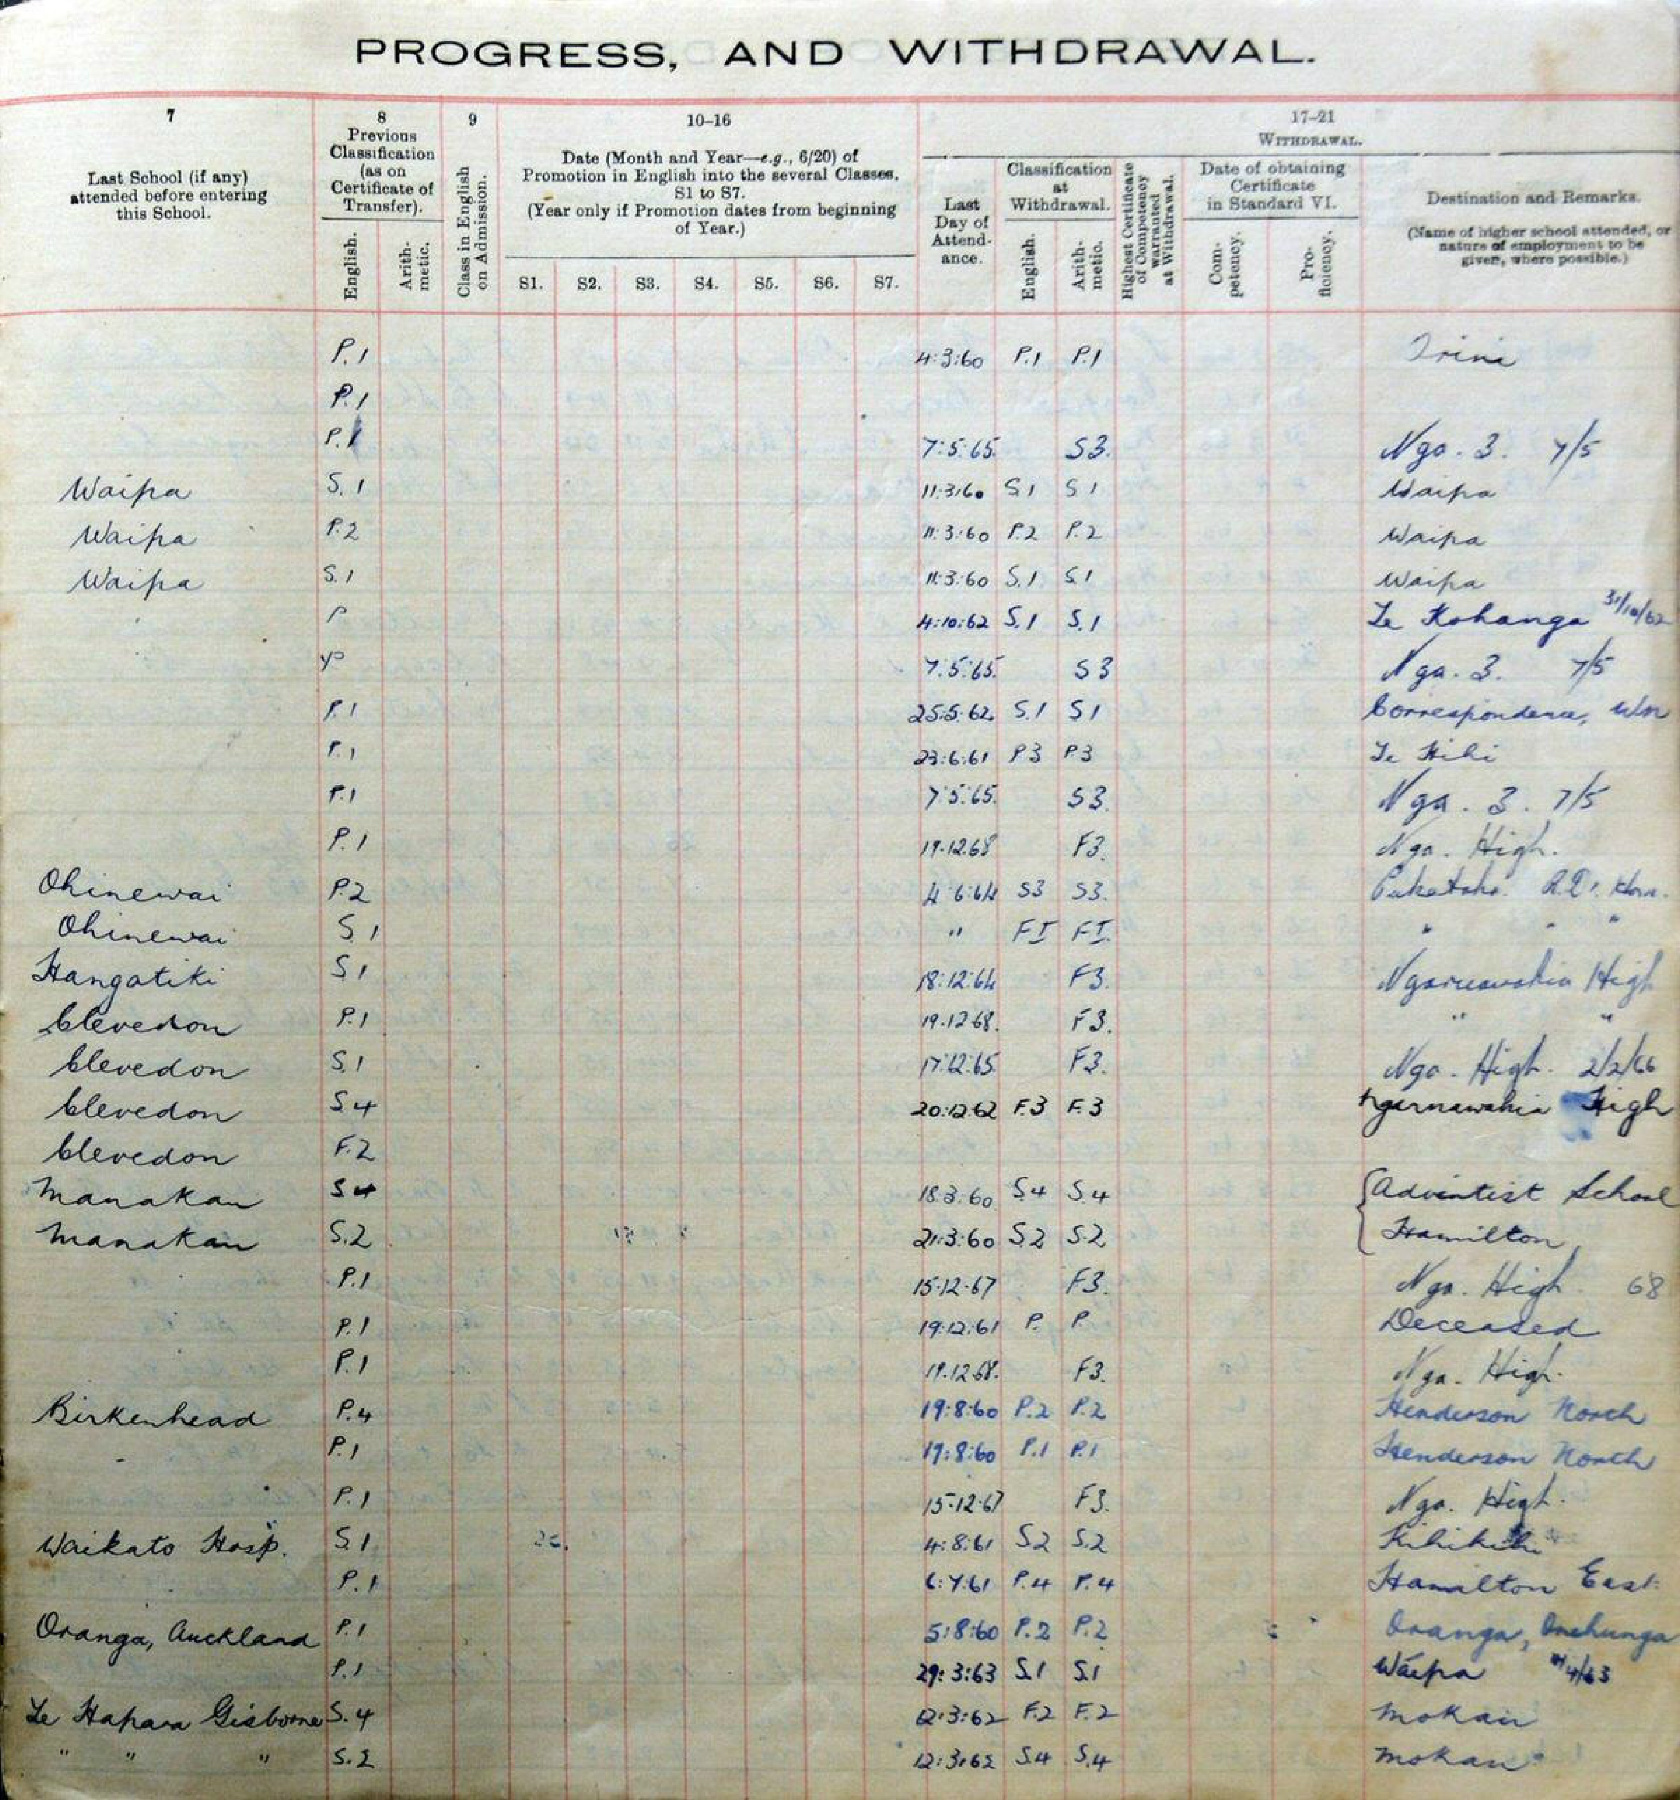 PROGRESS, AND WITHDRAWAL.
7
Last School (if any)
attended before entering
this School.
8
Previous
Classification
(as on
Certificate of
Transfer).
English.
Arith-
metic.
9
Class in English
on Admission.
10–16
Date (Month and Year—e.g., 6/20) of
Promotion in English into the several Classes,
S1 to S7.
(Year only if Promotion dates from beginning
of Year.)
S1. S2. S3. S4. S5. S6. S7.
17–21
WITHDRAWAL.
Last
Day of
Attend-
ance.
Classification
at
Withdrawal.
English.
Arith-
metic.
Highest Certificate
of Competency
warranted
at Withdrawal.
Date of obtaining
Certificate
in Standard VI.
Com-
petency.
Pro-
ficiency.
Destination and Remarks.
(Name of higher school attended, or
nature of employment to be
given, where possible.)
P.1 4:3:60 P.1 P.1
P.1
P.1 7:5:65. S3. Nga. 3. 7/5
Waipa S.1 11:3:60 S1 S1 Waipa
Waipa P.2 11:3:60 P.2 P.2 Waipa
Waipa S.1 11:3:60 S.1 S1 Waipa
P 4:10:62 S.1 S.1 Te Kohanga 31/10/62
P 7:5:65. S3 Nga. 3. 7/5
P.1 25:5:62. S.1 S1 Correspondence, Wn
P.1 23:6:61 P3 P3 Te Hihi
P.1 7:5:65. S3. Nga. 3. 7/5
P.1 19.12.68 F3. Nga. High.
Ohinewai P.2 4:6:64 S3 S3. Puketaha. R.D. Ham.
Ohinewai S.1 " FI FI. " " "
Hangatiki S1 18:12:64 F3. Ngaruawahia High
Clevedon P.1 19.12.68. F3. " "
Clevedon S.1 17:12:65. F3. Nga. High. 2/2/66
Clevedon S.4 20:12:62 F.3 F.3 Ngaruawahia High
Clevedon F.2
Manakau S4 18:3:60 S4 S.4 { Adventist School
Manakau S.2 21:3:60 S.2 S.2 Hamilton
P.1 15.12.67 F3. Nga. High. 68
P.1 19:12:61 P. P Deceased
P.1 19.12.68. F3. Nga. High.
Birkenhead P.4 19:8:60 P.2 P.2 Henderson North
P.1 19:8:60 P.1 P.1 Henderson North
P.1 15.12.67 F3. Nga. High.
Waikato Hosp. S.1 4:8:61 S2 S.2 Kihikihi
P.1 6:7:61 P.4 P.4 Hamilton East
Oranga, Auckland P.1 5:8:60 P.2 P.2 Oranga, Onehunga
P.1 29:3:63 S.1 S.1 Waipa /4/63
Te Hapara Gisborne S.4 12:3:62 F.2 F.2 Mokau
" " " S.2 12:3:62 S.4 S.4 Mokau